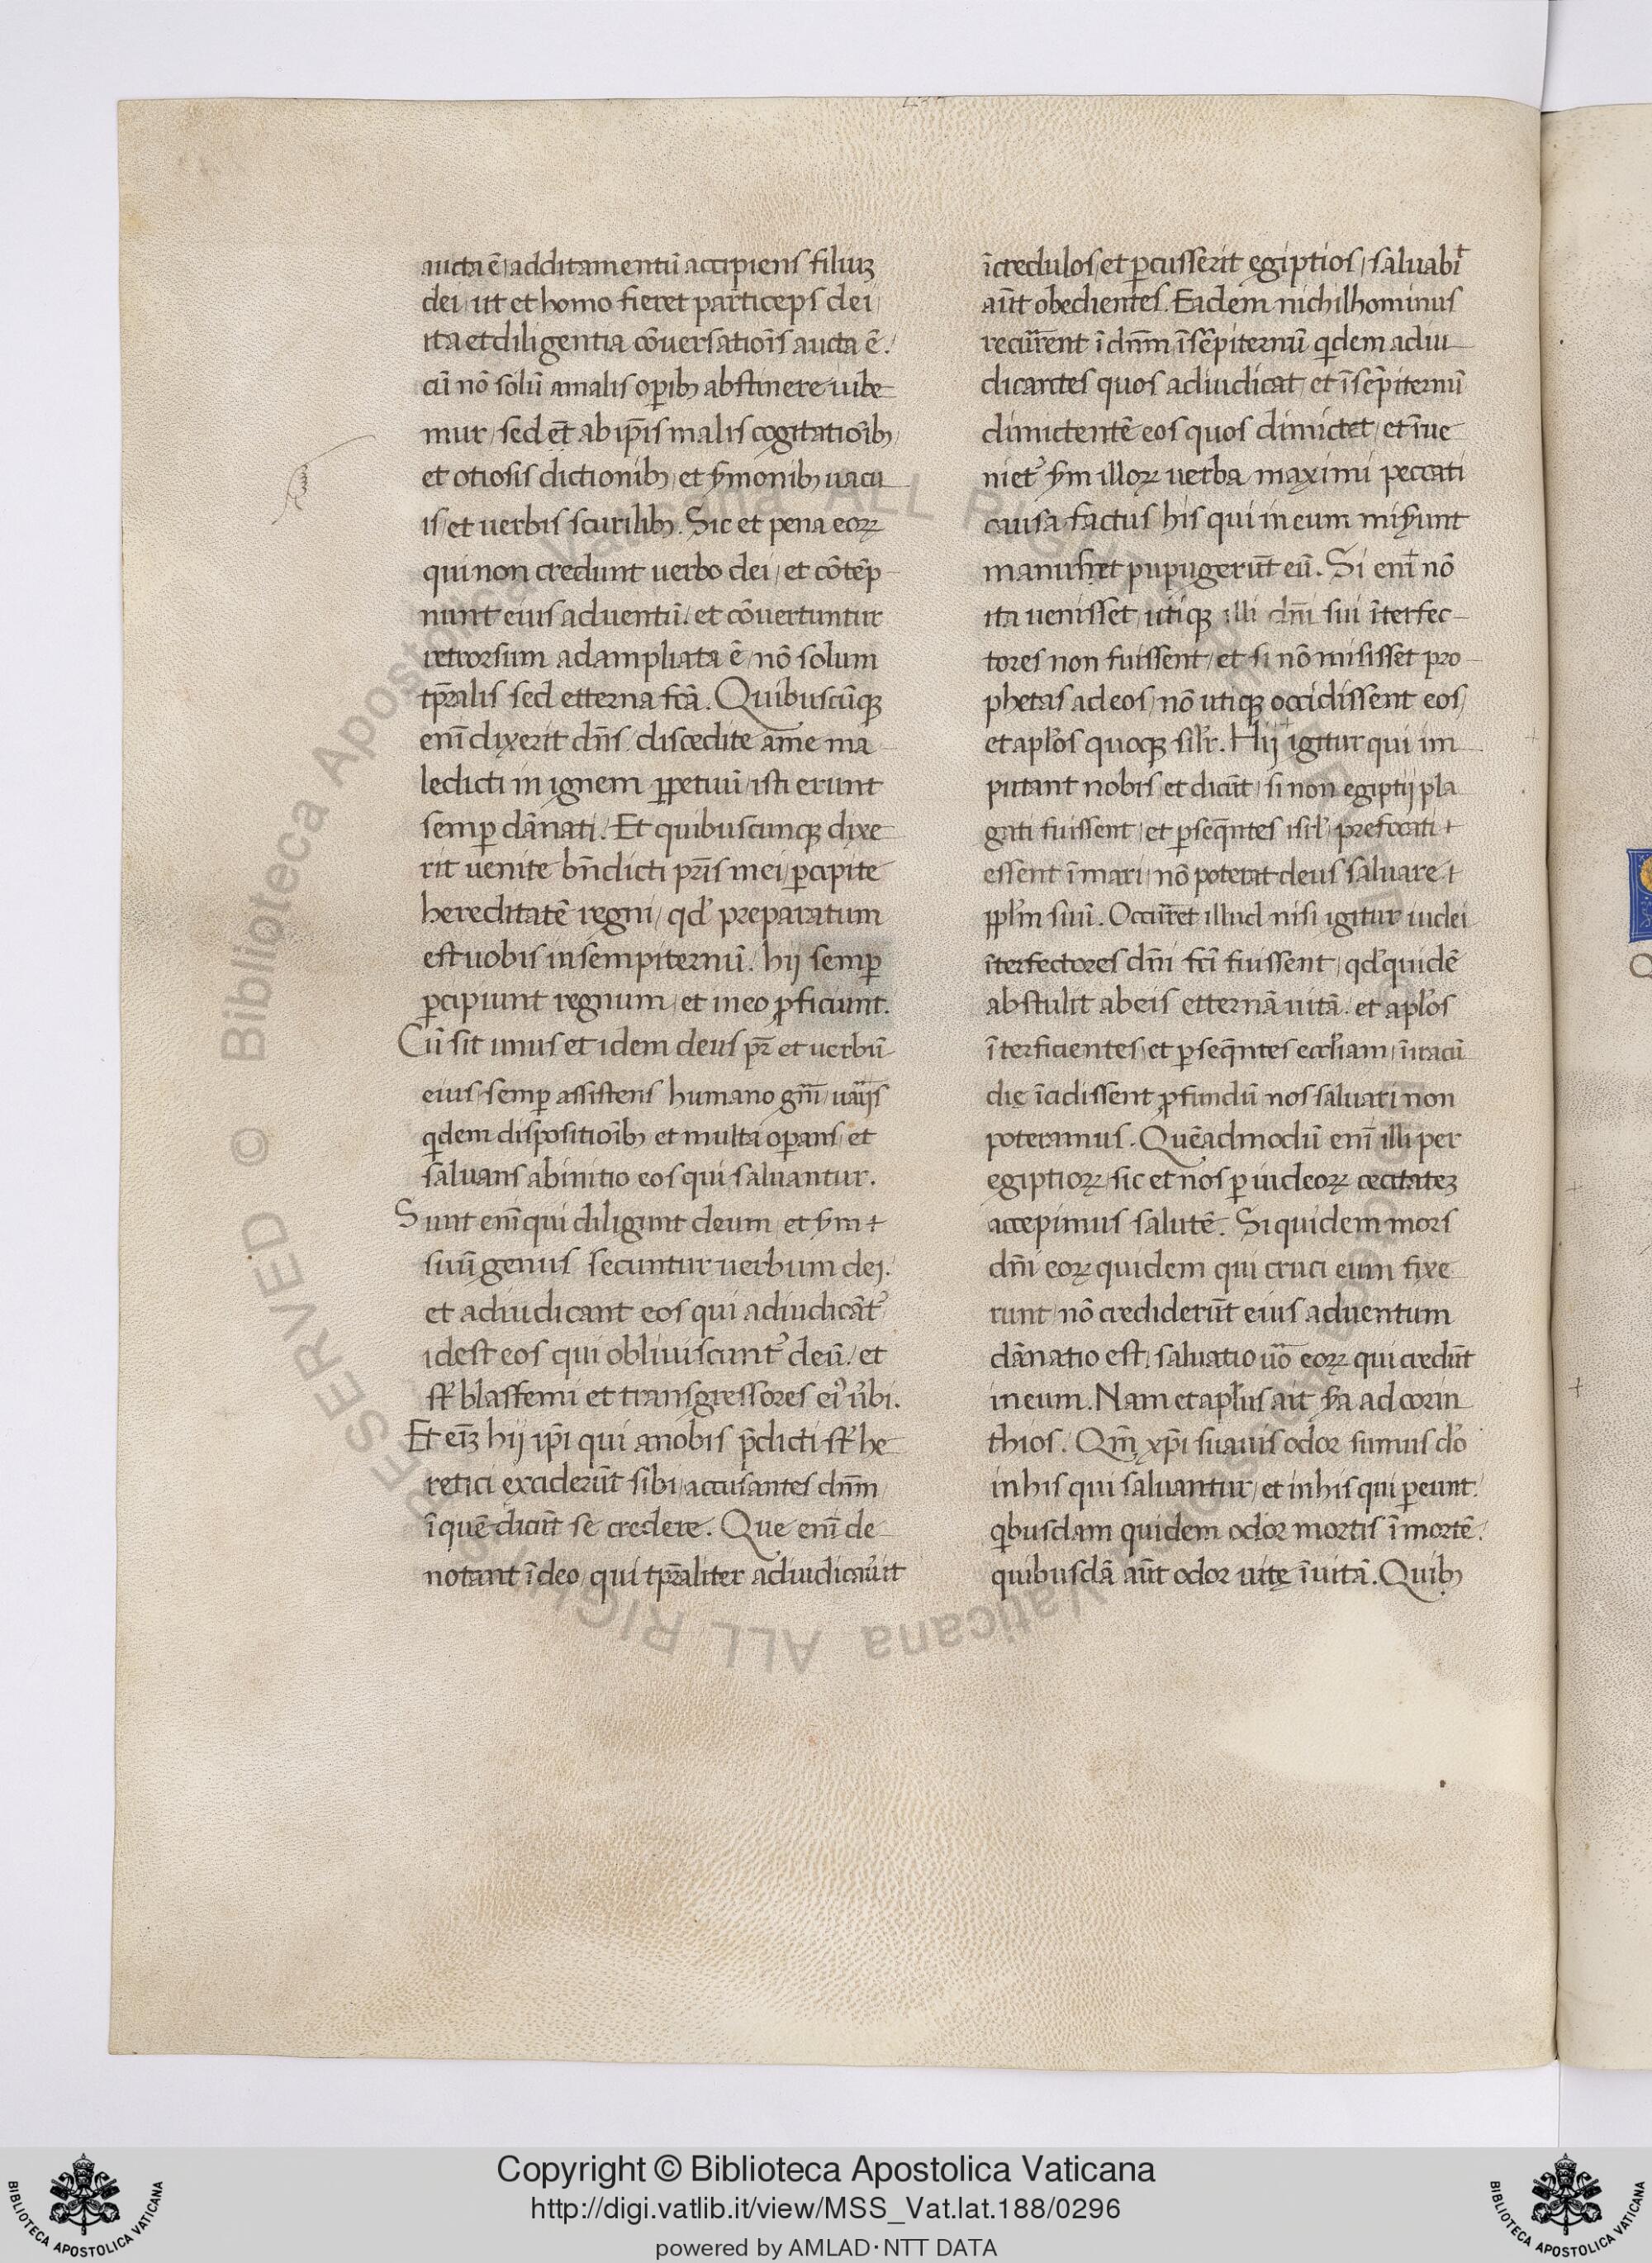 aucta ē, additamentū accipiens filiuꝫ
dei, ut et homo fieret particeps dei,
ita et diligentia cōuersatiōis aucta ē.
cū nō solū a malis oꝑibꝫ abstinere iube
mur, sed et̄ ab ip̄is malis cogitatioībꝫ,
et otiosis dictionibꝫ, et ẜmonibꝫ uacu
is, et uerbis scurilibꝫ. Sic et pena eoꝝ
qui non credunt uerbo dei, et cōtēp
nunt eius aduentū, et cōuertuntur
retrorsum adampliata ē, nō solum
tp̄ralis sed etterna fc̄a. Quibuscūqꝫ
enī dixerit dn̄s, discedite a me ma
ledicti in ignem ꝑpetuū, isti erunt
semꝑ dānati. Et quibuscunqꝫ dixe
rit uenite bn̄dicti pr̄is mei, ꝑcipite
hereditatē regni, qd' preparatum
est uobis in sempiternū. hij semꝑ
ꝑcipiunt regnum, et in eo ꝓficiunt.
Cū sit unus et idem deus pr̄ et uerbū
eius, semꝑ assistens humano gn̄i, uarijs
qdem dispositioībꝫ et multa oꝑans, et
saluans ab initio eos qui saluantur.
Sunt enī qui diligunt deum, et ẜm +
suū genus secuntur uerbum dei.
et adiudicant eos qui adiudicāt᷑
id est eos qui obliuiscunt᷑ deū, et
st' blasfemi et transgressores ei' ūbi.
Et eīꝫ hij ip̄i qui a nobis p̄dicti st' he
retici exciderūt sibi, accusantes dn̄m,
ī quē dicūt se credere. Que enī de
notant ī deo, qui tp̄raliter adiudicau'it
īcredulos, et ꝑcusserit egiptios, saluabit
aūt obedientes. Eadem nichilhominus
recurrent ī dn̄m, ī sēpiternū qdem adiu
dicantes quos adiudicat, et ī sēpiternū
dimictentē eos quos dimictet, et īue
niet᷑ ẜm illoꝝ uerba maximi peccati
causa factus his qui in eum miẜunt
manus, et pupugerūt eū. Si enī nō
ita uenisset, utiqꝫ illi dn̄i sui īterfec
tores non fuissent, et si nō misisset pro
phetas ad eos, nō utiqꝫ occidissent eos,
et apl'os quoqꝫ silr'. Hij igitur qui im
putant nobis, et dicūt, si non egiptij pla
gati fuissent, et ꝑseq̄ntes isrl', prefocati +
essent ī mari, nō poterat deus saluare +
ppl'm suū. Occurret illud nisi igitur iudei
īterfectores dn̄i fc̄i fuissent, qd' quidē
abstulit ab eis etternā uitā, et apl'os
īterficientes, et ꝑseq̄ntes eccl'iam, ī iracū
die īcidissent ꝓfundū nos saluari non
poteramus. Quēadmodū enī illi per
egiptioꝝ, sic et nos ꝑ iudeoꝝ cecitateꝫ
accepimus salutē. Si quidem mors
dn̄i eoꝝ quidem qui cruci eum fixe
runt, nō crediderūt eius aduentum
dānatio est, saluatio uo' eoꝝ qui credūt
in eum. Nam et apl'us ait ẜa ad corin
thios. Qm̄ xp̄i suauis odor sumus dō
in his qui saluantur, et in his qui ꝑeunt,
qbusdam quidem odor mortis ī mortē,
quibusdā aūt odor uitę ī uitā. Quibꝫ
Copyright © Biblioteca Apostolica Vaticana
http://digi.vatlib.it/view/MSS_Vat.lat.188/0296
powered by AMLAD·NTT DATA
BIBLIOTECA APOSTOLICA VATICANA
BIBLIOTECA APOSTOLICA VATICANA